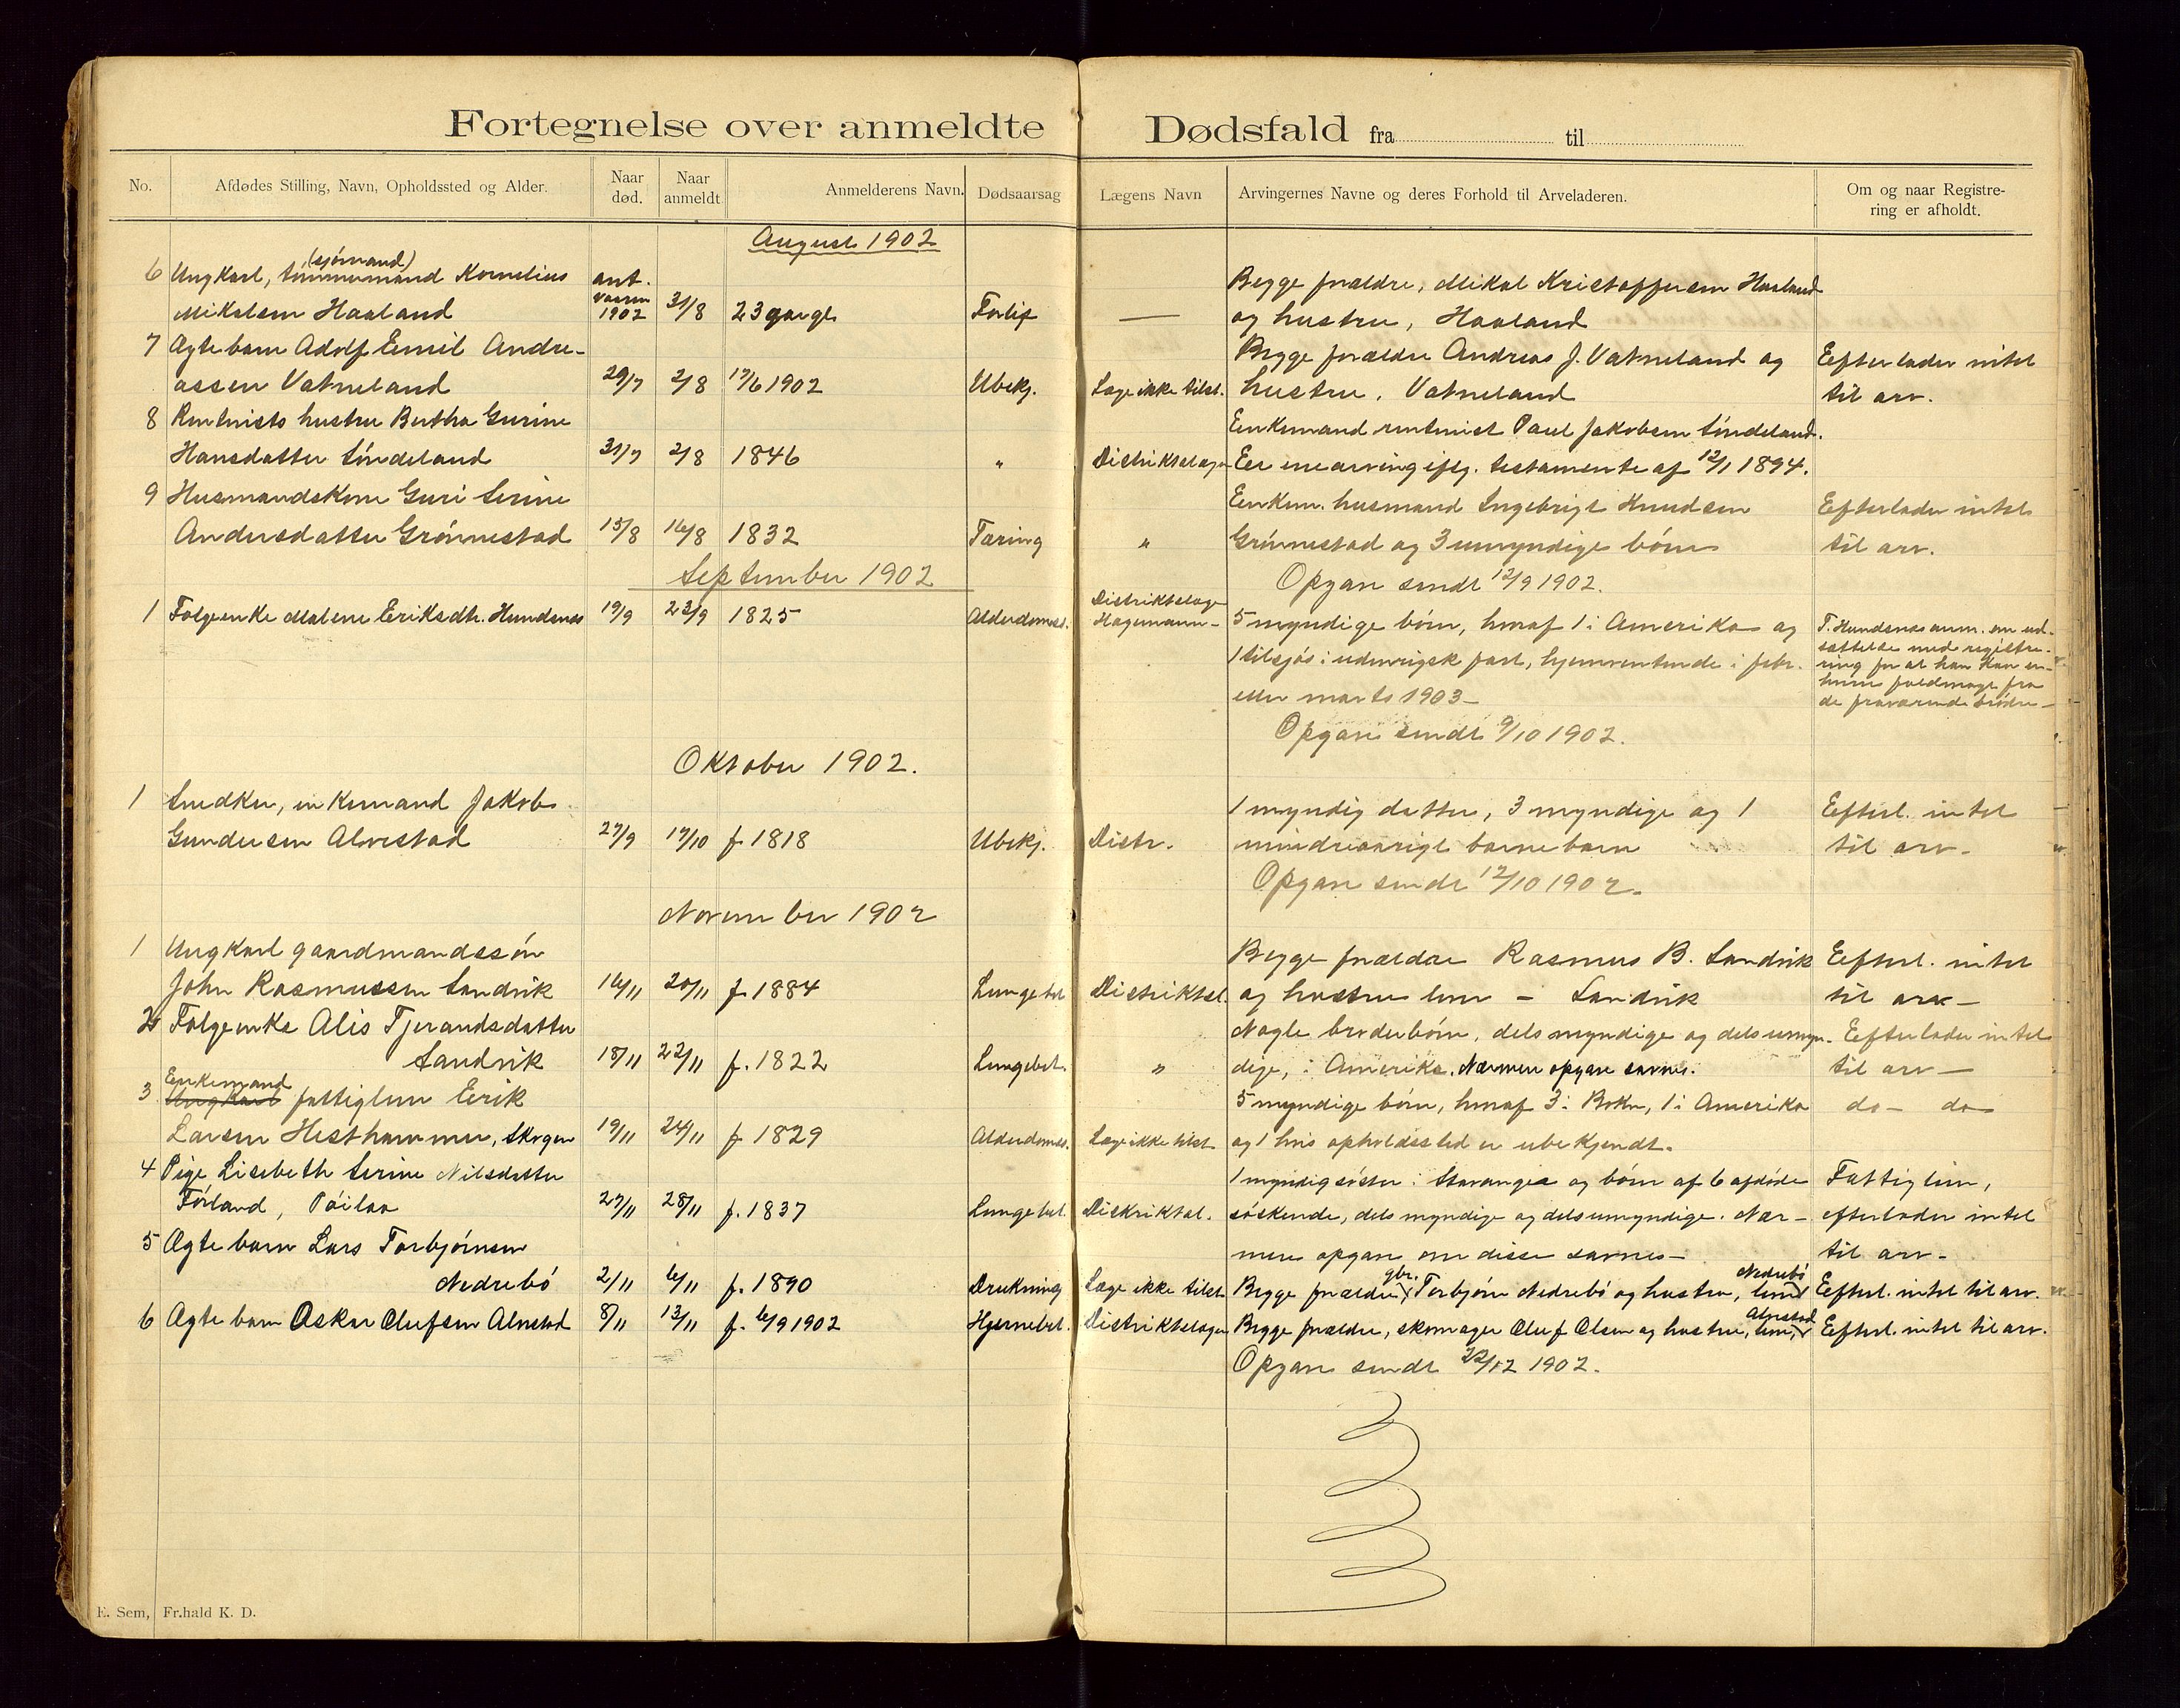 Fortegnelse over anmeldte Dødsfald fra til
No. Afdødes Stilling, Navn, Opholdssted og Alder. Naar død. Naar anmeldt. Anmelderens Navn. Dødsaarsag Lægens Navn Arvingernes Navne og deres Forhold til Arveladeren. Om og naar Registrering er afholdt.
August 1902
(sjømand)
6 Ungkarl, tømmermand Kornelius ant. Begge forældre, Mikal Kristoffersen Haaland
Mikalsen Haaland vaaren 1902 31/8 23 aar gl. Forlist — og hustru, Haaland
7 Ægtebarn Adolf Emil Andre- Begge forældre Andreas J. Vatneland og Efterlader intet
assen Vatneland 29/7 2/8 17/6 1902 Ubekj. Læge ikke tilst. hustru, Vatneland til arv.
8 Rentnists hustru Bertha Gurine Enkemand rentenist Paul Jakobsen Tøndeland.
Hansdatter Tøndeland 31/7 2/8 1846 " Distriktslægen Er enearving iflg. testamente af 12/1 1894.
9 Husmandskone Guri Serine Enkem. husmand Ingebrigt Knudsen Efterlader intet
Andersdatter Grønnestad 15/8 16/8 1832 Tæring " Grønnestad og 3 umyndige børn til arv.
September 1902 Opgave sendt 12/9 1902.
1 Følgeenke Malene Eriksdtr. Hundsnes 19/9 23/9 1825 Alderdomss. Distriktslæge Hagemann- 5 myndige børn, hvoraf 1 i Amerika og T. Hundsnæs anm. om ud-
1 tilsjøs i udenrigsk fart, hjemventende i febr. sættelse med registre-
eller marts 1903- ring for at han kan er-
hverve fuldmagt fra
de fraværende brødre-
Opgave sendt 9/10 1902.
Oktober 1902.
1 Snedker, enkemand Jakob 1 myndig datter, 3 myndige og 1 Efterl. intet
Gundersen Alvestad 27/9 17/10 f. 1818 Ubekj. Distr. mindreaarigt barnebarn til arv-
Opgave sendt 17/10 1902.
November 1902
1 Ungkarl gaardmandssøn Begge forældre Rasmus B. Sandvik Efterl. intet
John Rasmussen Sandvik 16/11 20/11 f. 1884 Lungebet. Distriktsl. og hustru Lina - Sandvik til arv-
2 Følgeenke Alis Tjerandsdatter Nogle broderbørn, dels myndige og dels umyn- Efterlader intet
Sandvik 18/11 22/11 f. 1822 Lungebet. " dige, i Amerika. Nærmere opgave savnes. til arv-
Enkemand
3 Ungkarl fattiglem Erik 5 myndige børn, hvoraf 3 i Bokn, 1 i Amerika do- do
Larsen Hesthammer, Skogen 19/11 24/11 f. 1829 Alderdomss. Læge ikke tilst. og 1 hvis opholdssted er ubekjendt.
4 Pige Lisebeth Serine Nilsdatter 1 myndig søster i Stavanger og børn af 6 afdøde Fattiglem,
Førland, 27/11 28/11 f. 1837 Lungebet. Distriktsl. søskende, dels myndige og dels umyndige. Nær- efterlader intet
5 Ægtebarn Lars Torbjørnsen mere opgave om disse savnes- til arv-
Nedrebø 2/11 6/11 f. 1890 Drukning Læge ikke tilst. Begge forældre, gbr. Torbjørn Nedrebø og hustru, Nedrebø Efterl. intet til arv.
6 Ægte barn Oskar Olufsen Alvestad 8/11 13/11 f. 6/9 1902 Hjernebet. Distriktslægen Begge forældre, skomager Oluf Olsen og hustru, Alvestad Efterl. intet til arv.
Opgave sendt 22/12 1902.
E. Sem, Fr.hald K. D.